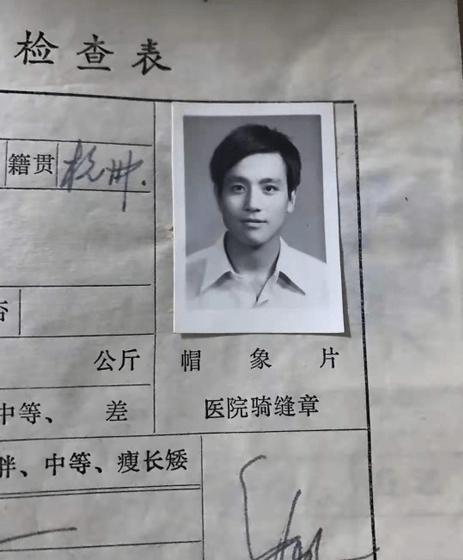 检查表
籍贯 杭州.
公斤 帽象片
中等、 差 医院骑缝章
胖、中等、瘦长矮